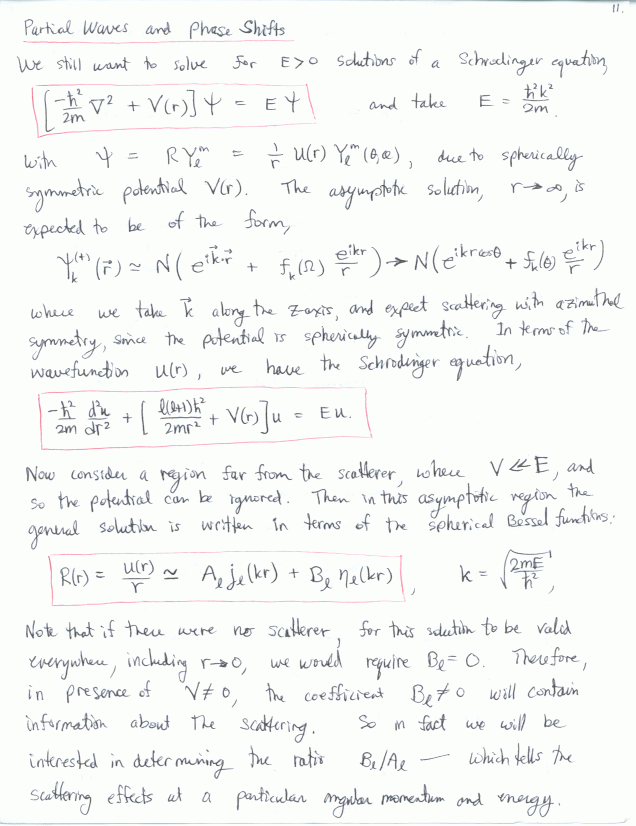 11.
Partial Waves and Phase Shifts
We still want to solve for E>0 solutions of a Schrodinger equation,
[-ħ²/2m ∇² + V(r)] Ψ = E Ψ and take E = ħ²k²/2m.
with Ψ = R Yₗᵐ = 1/r u(r) Yₗᵐ(θ,φ), due to spherically
symmetric potential V(r). The asymptotic solution, r→∞, is
expected to be of the form,
Ψₖ⁽⁺⁾(r⃗) ≃ N( e^{ik⃗·r⃗} + fₖ(Ω) e^{ikr}/r ) → N( e^{ikrcosθ} + fₖ(θ) e^{ikr}/r )
where we take k⃗ along the z-axis, and expect scattering with azimuthal
symmetry, since the potential is spherically symmetric. In terms of the
wavefunction u(r), we have the Schrodinger equation,
-ħ²/2m d²u/dr² + [ l(l+1)ħ²/2mr² + V(r) ] u = Eu.
Now consider a region far from the scatterer, where V≪E, and
so the potential can be ignored. Then in this asymptotic region the
general solution is written in terms of the spherical Bessel functions:
R(r) = u(r)/r ≃ Aₗ jₗ(kr) + Bₗ ηₗ(kr), k = √(2mE/ħ²),
Note that if there were no scatterer, for this solution to be valid
everywhere, including r→0, we would require Bₗ = 0. Therefore,
in presence of V≠0, the coefficient Bₗ≠0 will contain
information about the scattering. So in fact we will be
interested in determining the ratio Bₗ/Aₗ — which tells the
scattering effects at a particular angular momentum and energy.